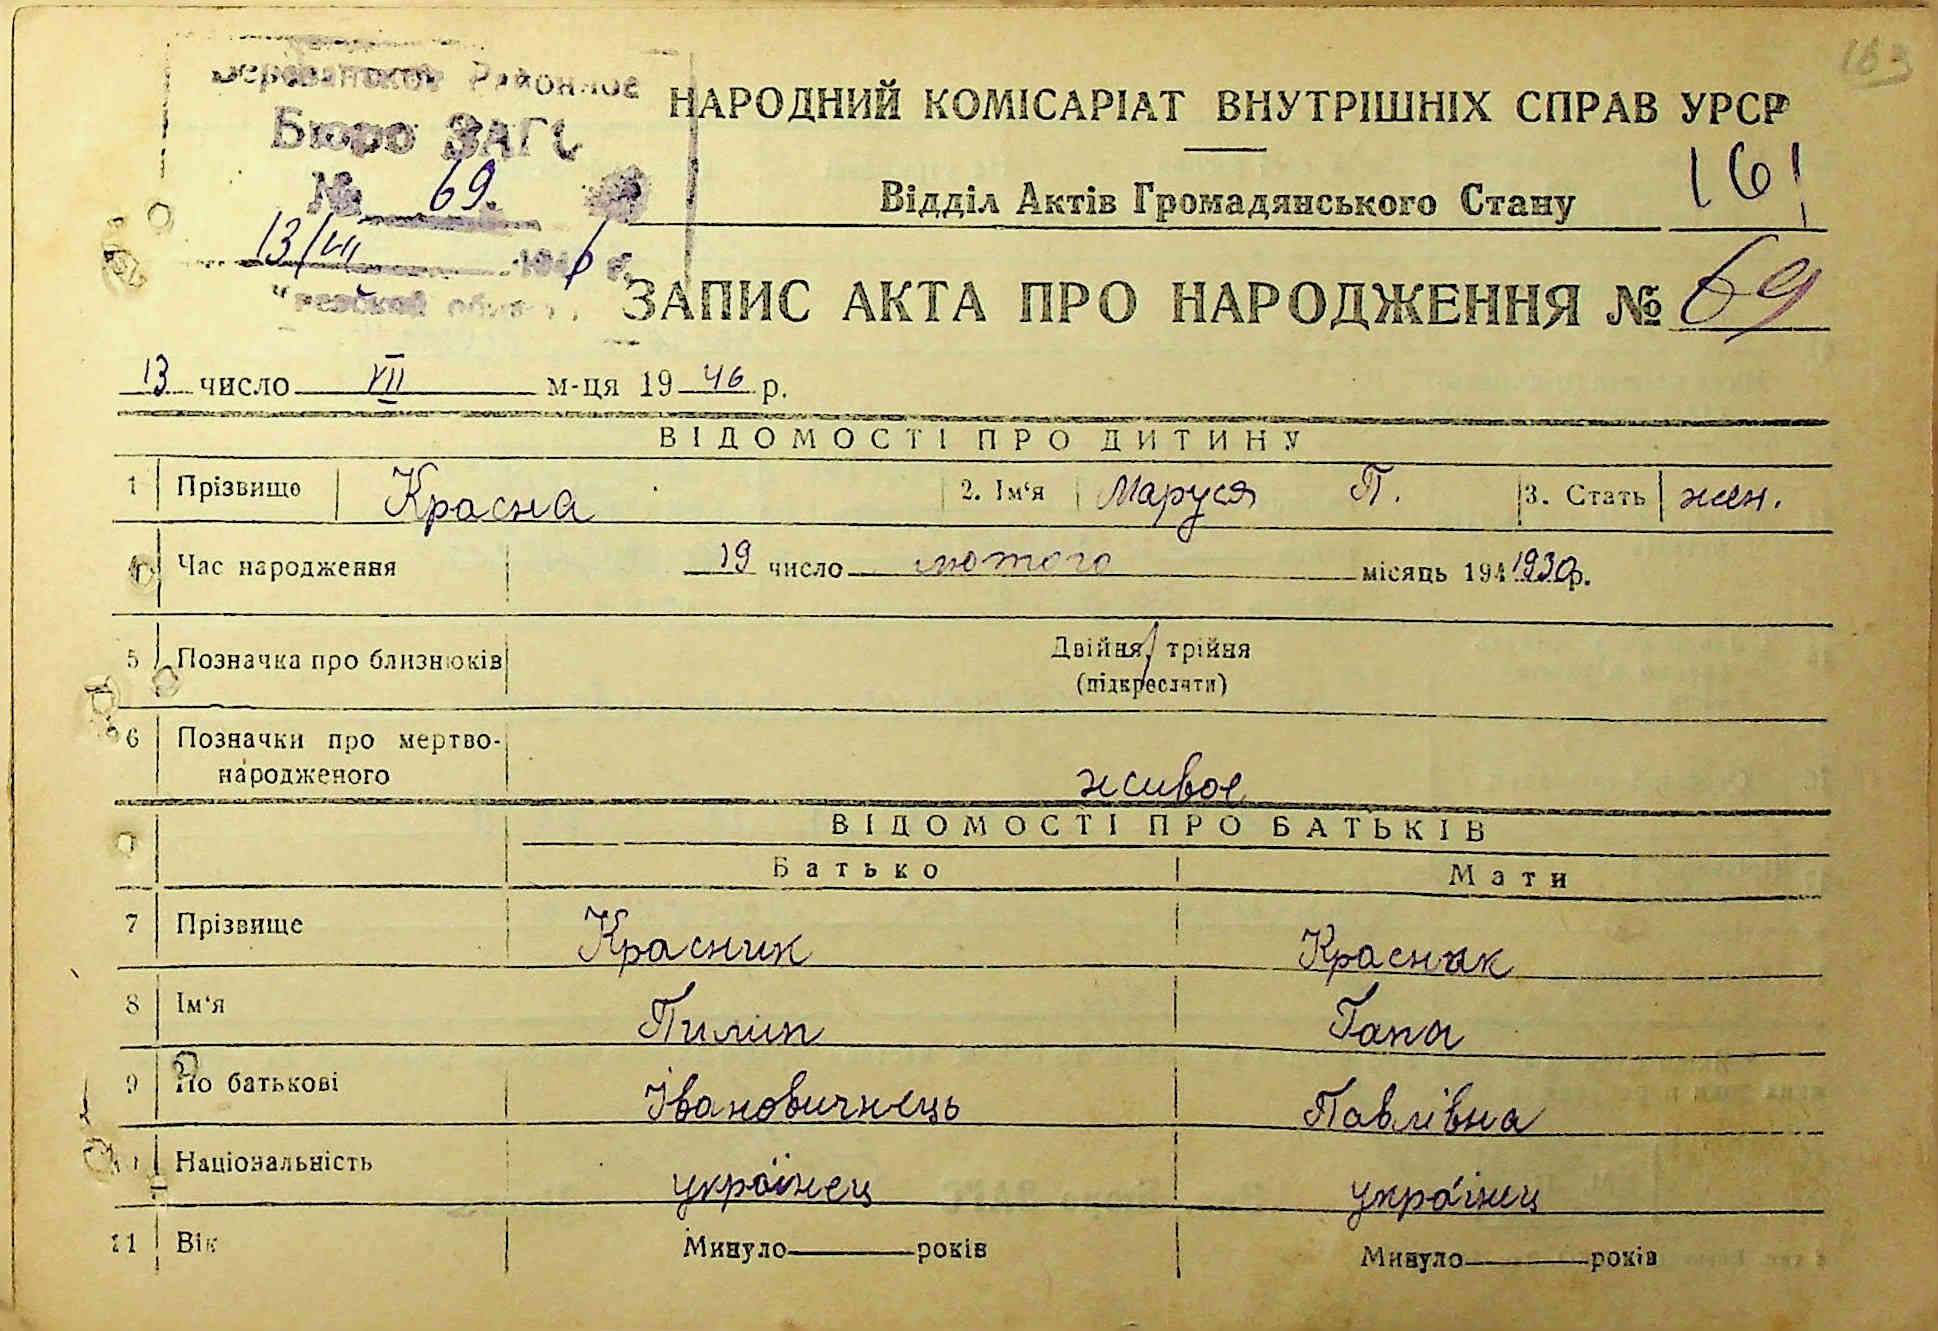 163
Районное
Бюро ЗАГС
№ 69.
13/VII 1946 г.
НАРОДНИЙ КОМІСАРІАТ ВНУТРІШНІХ СПРАВ УРСР
161
Відділ Актів Громадянського Стану
ЗАПИС АКТА ПРО НАРОДЖЕННЯ № 69
13 число VII м-ця 1946 р.
ВІДОМОСТІ ПРО ДИТИНУ
1 Прізвище Красна 2. Ім‘я Маруся П. 3. Стать жен.
Час народження 19 число лютого місяць 194 1930р.
5 Позначка про близнюків Двійня, трійня
(підкреслити)
6 Позначки про мертво-
народженого живое
ВІДОМОСТІ ПРО БАТЬКІВ
Батько Мати
7 Прізвище Красник Красник
8 Ім‘я Пилип Гапы
9 По батькові Івановичнець Павлівна
Національність украінец украінец
11 Вік Минуло років Минуло років